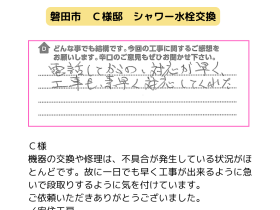 磐田市　Ｃ様邸　シャワー水栓交換
どんな事でも結構です。今回の工事に関するご感想を
お願いします。辛口のご意見もぜひお聞かせ下さい。
電話してからの、対応が早く、
工事も、素早く対応してくれた
Ｃ様
機器の交換や修理は、不具合が発生している状況がほ
とんどです。故に一日でも早く工事が出来るように急
いで段取りするように気を付けています。
ご依頼いただきありがとうございました。